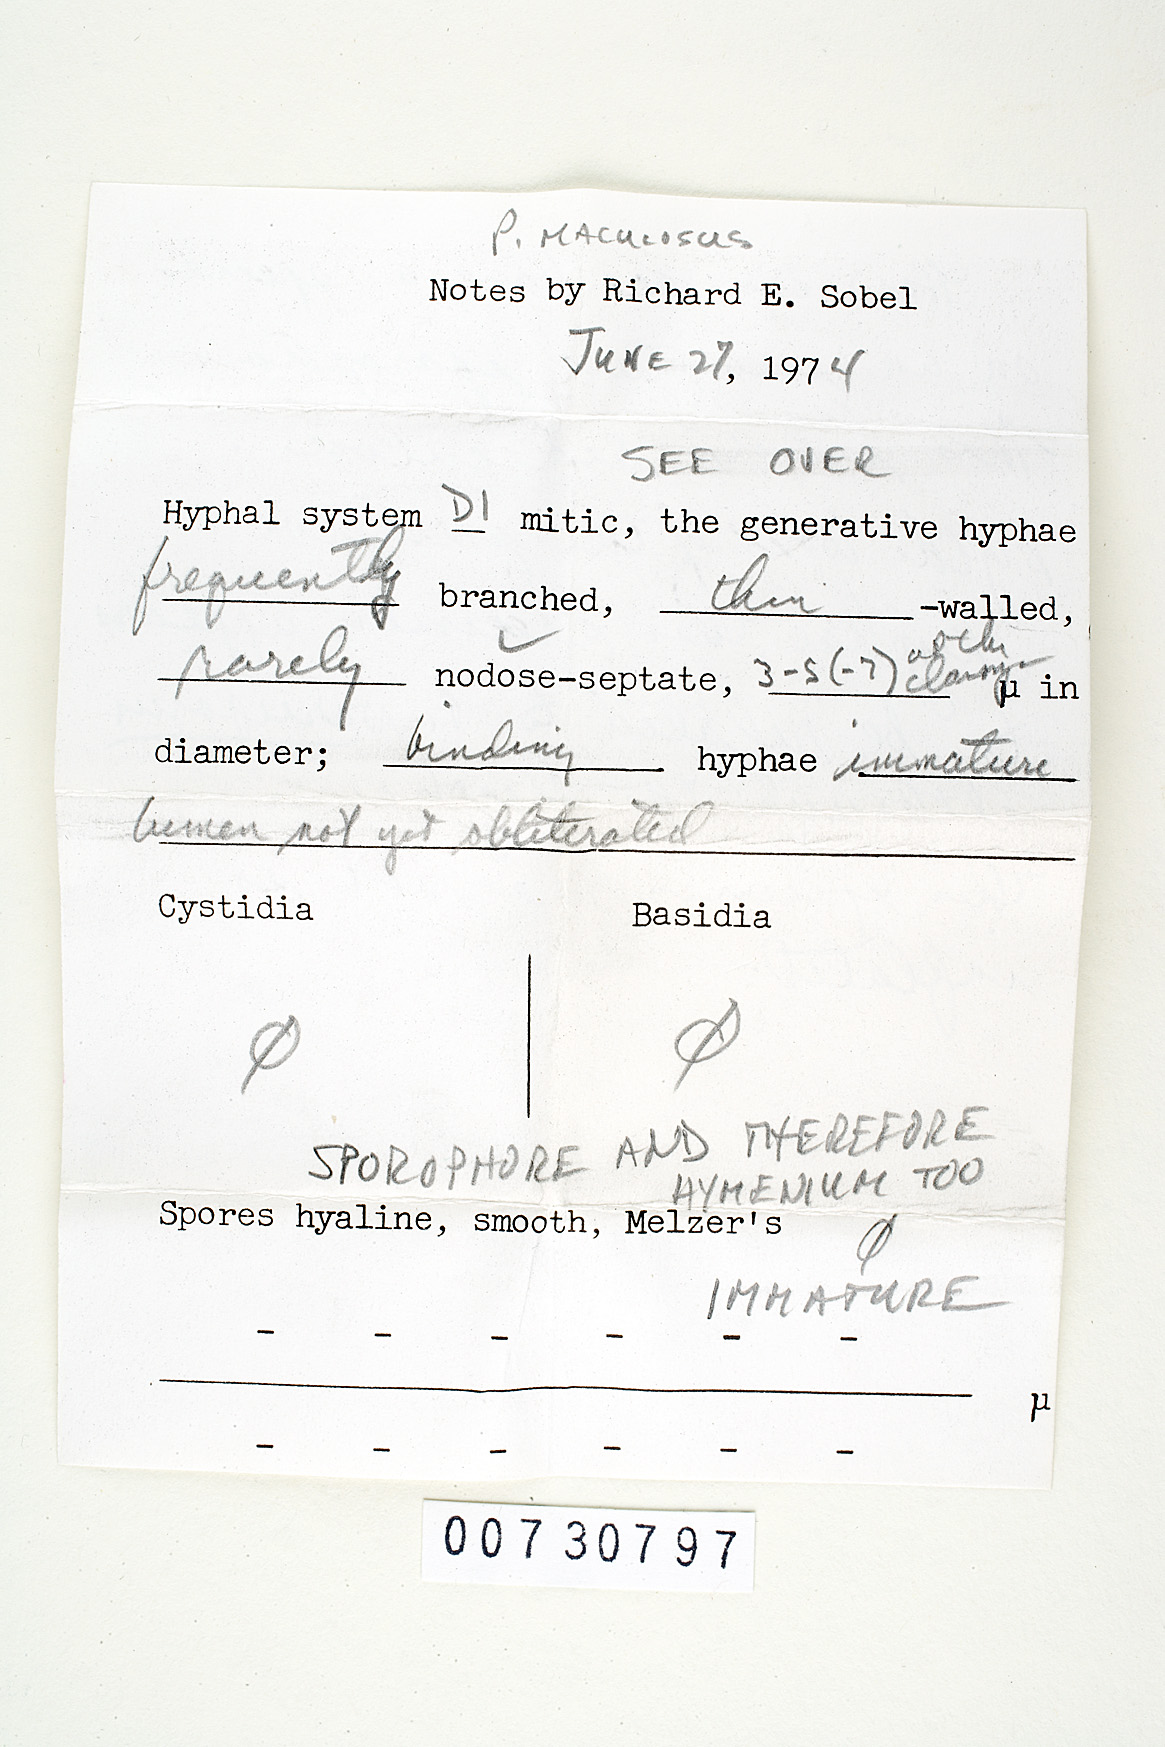 P. MACULOSUS
Notes by Richard E. Sobel
JUNE 27, 1974
SEE OVER
Hyphal system DI mitic, the generative hyphae
frequently branched, thin -walled,
rarely nodose-septate, 3-5(-7) at the clamp μ in
diameter; binding hyphae immature
lumen not yet obliterated
Cystidia Basidia
Ø Ø
SPOROPHORE AND THEREFORE
HYMENIUM TOO
Spores hyaline, smooth, Melzer's Ø
IMMATURE
- - - - - -
μ
- - - - - -
00730797